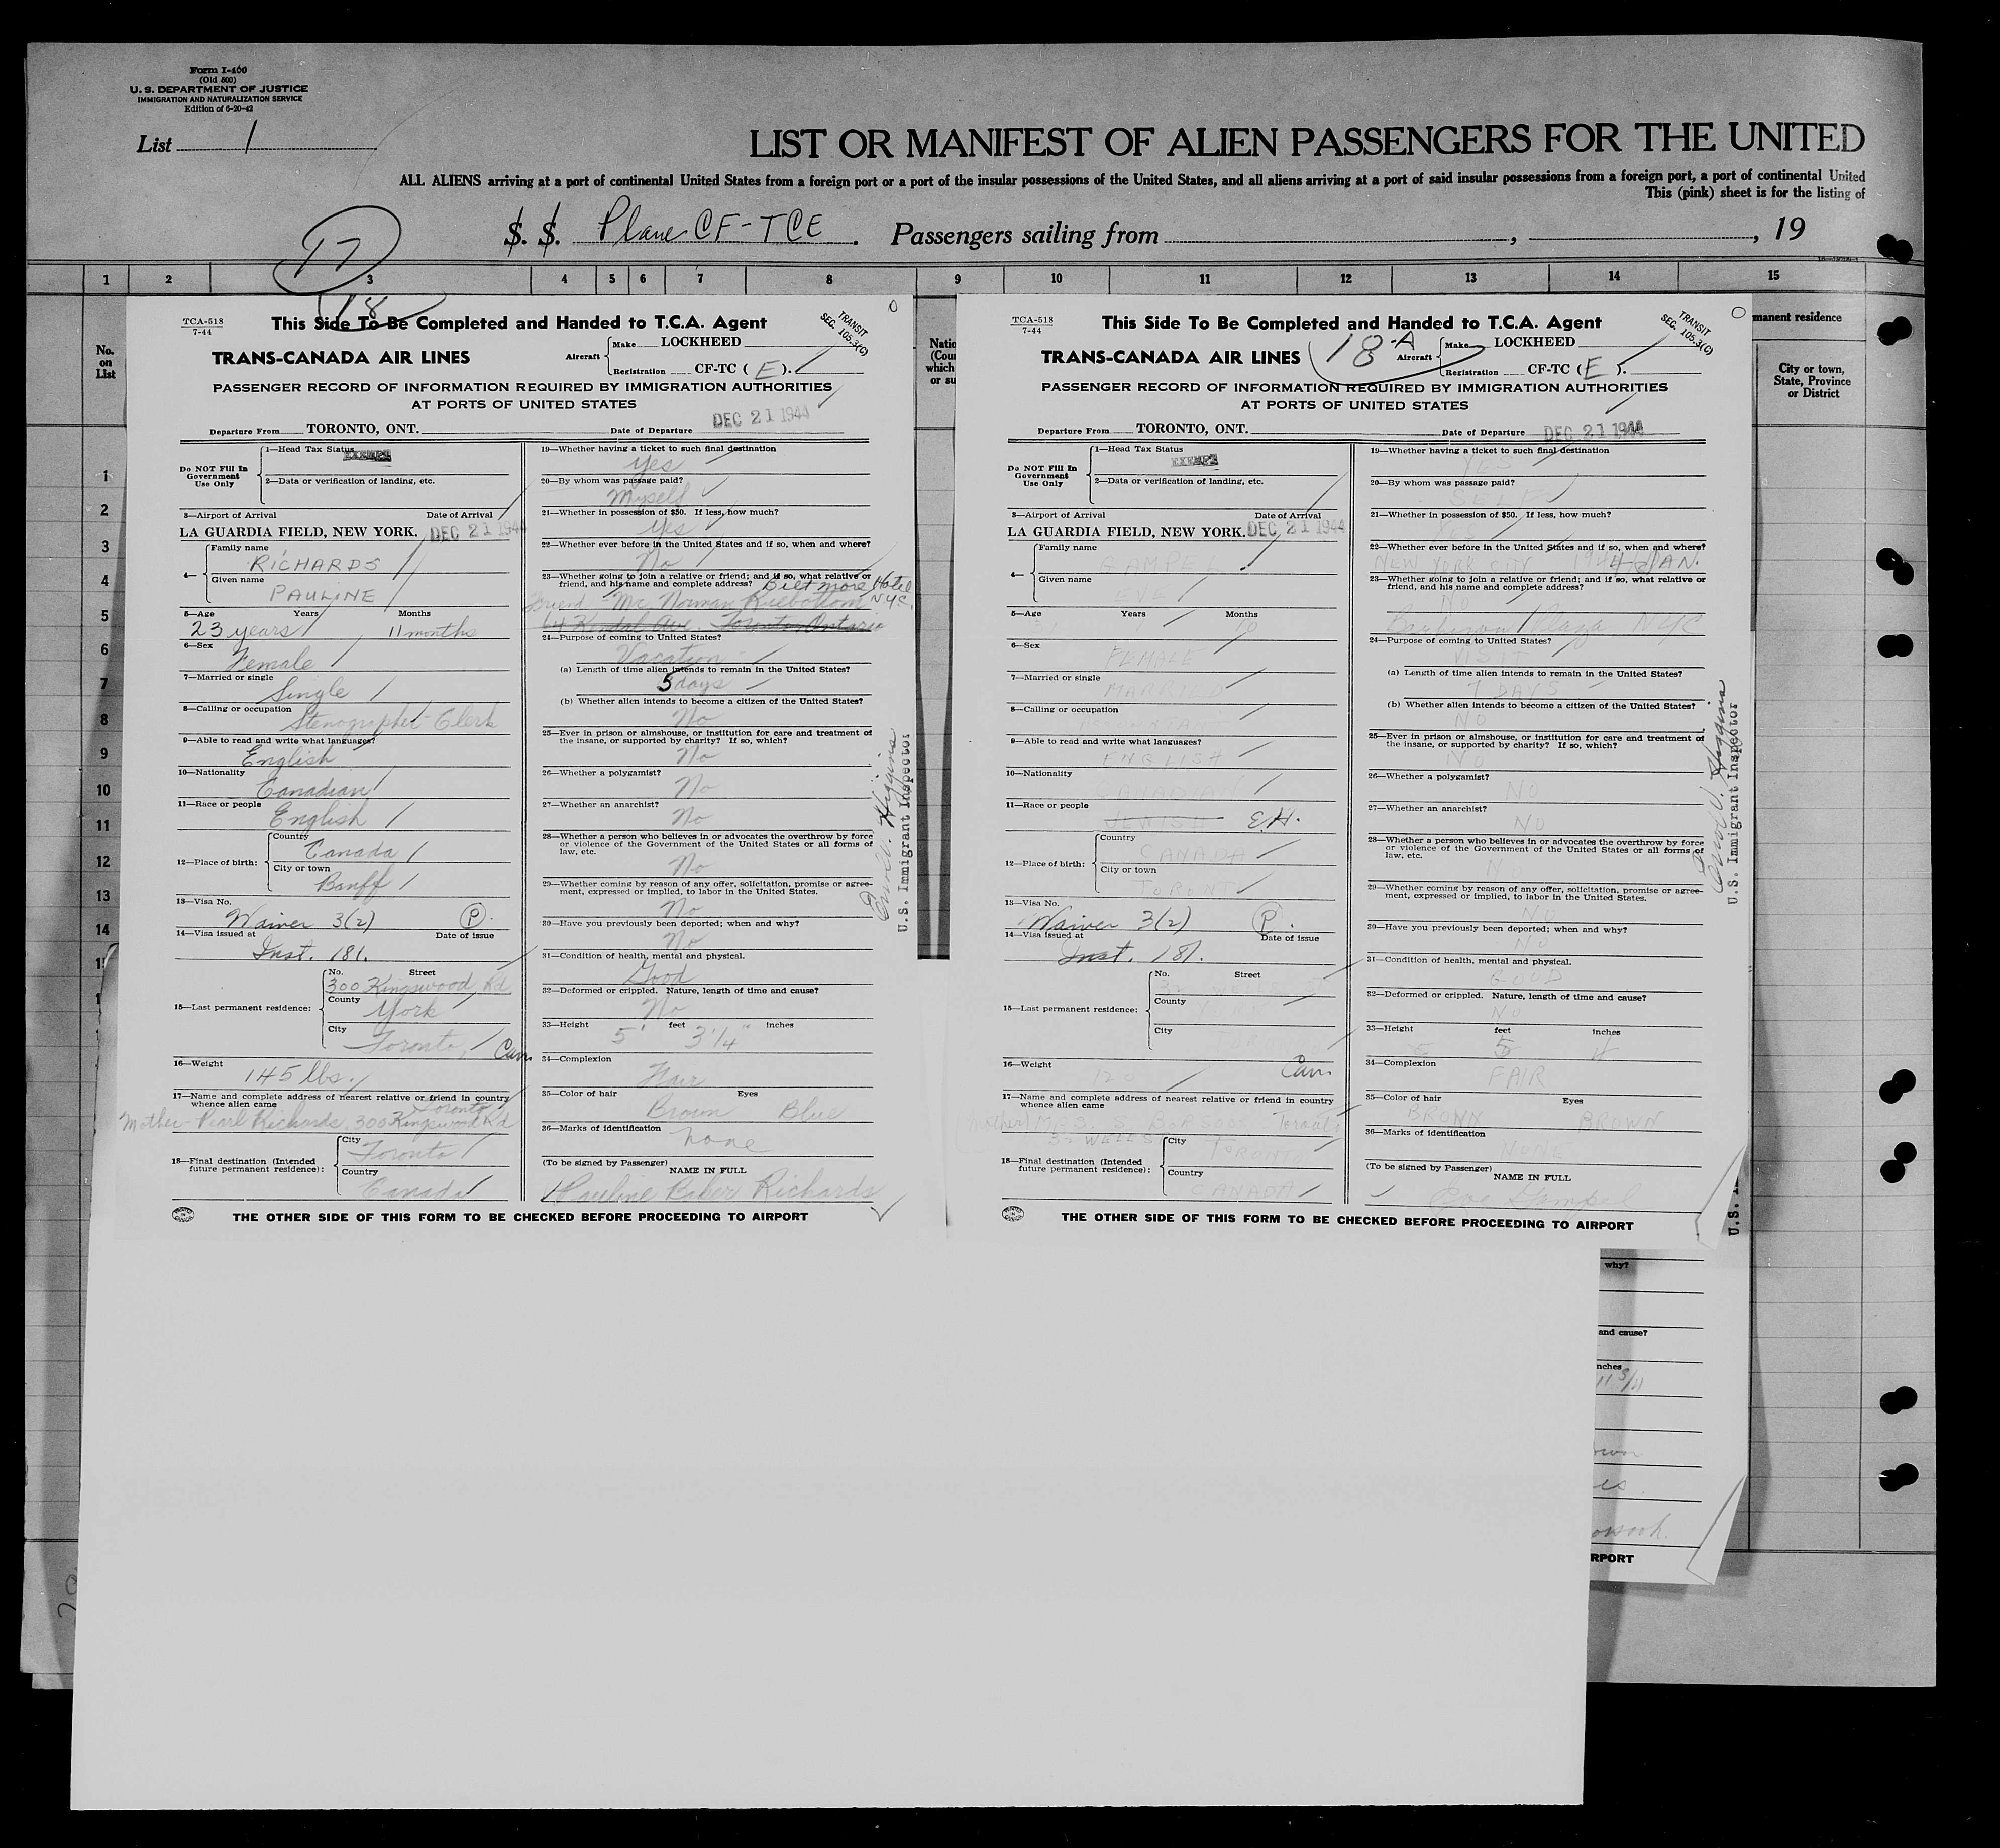 Form I-466
(Old 500)
U. S. DEPARTMENT OF JUSTICE
IMMIGRATION AND NATURALIZATION SERVICE
Edition of 6-20-42
List 1
LIST OR MANIFEST OF ALIEN PASSENGERS FOR THE UNITED
ALL ALIENS arriving at a port of continental United States from a foreign port or a port of the insular possessions of the United States, and all aliens arriving at a port of said insular possessions from a foreign port, a port of continental United
This (pink) sheet is for the listing of
17
S. S. Plane CF-TCE. Passengers sailing from , , 19
1 2 3 4 5 6 7 8 9 10 11 12 13 14 15
No.
on
List
1
2
3
4
5
6
7
8
9
10
11
12
13
14
18
TCA-518
7-44
This Side To Be Completed and Handed to T.C.A. Agent
TRANSIT
SEC. 105.3(C)
TRANS-CANADA AIR LINES
Aircraft Make LOCKHEED
Registration CF-TC (E).
PASSENGER RECORD OF INFORMATION REQUIRED BY IMMIGRATION AUTHORITIES
AT PORTS OF UNITED STATES
Departure From TORONTO, ONT. Date of Departure DEC 21 1944
Do NOT Fill In
Government
Use Only
1—Head Tax Status EXEMPT
2—Data or verification of landing, etc.
3—Airport of Arrival Date of Arrival
LA GUARDIA FIELD, NEW YORK. DEC 21 1944
4— Family name
RICHARDS
Given name
PAULINE
5—Age Years Months
23 years 11 months
6—Sex
Female
7—Married or single
Single
8—Calling or occupation
Stenographer-Clerk
9—Able to read and write what languages?
English
10—Nationality
Canadian
11—Race or people
English
12—Place of birth: Country
Canada
City or town
Banff
13—Visa No.
Waiver 3(2) P.
14—Visa issued at Date of issue
Inst. 181.
15—Last permanent residence: No. Street
300 Kingswood Rd
County
York
City
Toronto, Can
16—Weight
145 lbs.
17—Name and complete address of nearest relative or friend in country
whence alien came
Toronto
Mother - Pearl Richards, 300 Kingswood Rd
18—Final destination (Intended
future permanent residence): City
Toronto
Country
Canada
19—Whether having a ticket to such final destination
Yes
20—By whom was passage paid?
Myself
21—Whether in possession of $50. If less, how much?
Yes
22—Whether ever before in the United States and if so, when and where?
No
23—Whether going to join a relative or friend; and if so, what relative or
friend, and his name and complete address? Biltmore Hotel
Friend - Mr. Norman N.Y.C.
64 Kendal Ave. Toronto Ontario
24—Purpose of coming to United States?
Vacation
(a) Length of time alien intends to remain in the United States?
5 days
(b) Whether alien intends to become a citizen of the United States?
No
25—Ever in prison or almshouse, or institution for care and treatment of
the insane, or supported by charity? If so, which?
No
26—Whether a polygamist?
No
27—Whether an anarchist?
No
28—Whether a person who believes in or advocates the overthrow by force
or violence of the Government of the United States or all forms of
law, etc.
No
29—Whether coming by reason of any offer, solicitation, promise or agree-
ment, expressed or implied, to labor in the United States.
No
30—Have you previously been deported; when and why?
No
31—Condition of health, mental and physical.
Good
32—Deformed or crippled. Nature, length of time and cause?
No
33—Height feet inches
5' 3 1/4"
34—Complexion
Fair
35—Color of hair Eyes
Brown Blue
36—Marks of identification
none
(To be signed by Passenger) NAME IN FULL
Pauline Baker Richards
THE OTHER SIDE OF THIS FORM TO BE CHECKED BEFORE PROCEEDING TO AIRPORT
Higgins
U.S. Immigrant Inspector
TCA-518
7-44
This Side To Be Completed and Handed to T.C.A. Agent
TRANSIT
SEC. 105.3(C)
TRANS-CANADA AIR LINES
18-A
Aircraft Make LOCKHEED
Registration CF-TC (E).
PASSENGER RECORD OF INFORMATION REQUIRED BY IMMIGRATION AUTHORITIES
AT PORTS OF UNITED STATES
Departure From TORONTO, ONT. Date of Departure DEC 21 1944
Do NOT Fill In
Government
Use Only
1—Head Tax Status
EXEMPT
2—Data or verification of landing, etc.
3—Airport of Arrival Date of Arrival
LA GUARDIA FIELD, NEW YORK. DEC 21 1944
4— Family name
GAMPEL
Given name
EVE
5—Age Years Months
6—Sex
FEMALE
7—Married or single
MARRIED
8—Calling or occupation
9—Able to read and write what languages?
ENGLISH
10—Nationality
CANADIAN
11—Race or people
JEWISH E.H.
12—Place of birth: Country
CANADA
City or town
TORONTO
13—Visa No.
Waiver 3(2) P.
14—Visa issued at Date of issue
Inst. 181.
15—Last permanent residence: No. Street
County
City
16—Weight Can.
120
17—Name and complete address of nearest relative or friend in country
whence alien came
(Mother) MRS. Toronto
18—Final destination (Intended
future permanent residence): City
TORONTO
Country
CANADA
19—Whether having a ticket to such final destination
YES
20—By whom was passage paid?
SELF
21—Whether in possession of $50. If less, how much?
YES
22—Whether ever before in the United States and if so, when and where?
NEW YORK CITY 1944 JAN.
23—Whether going to join a relative or friend; and if so, what relative or
friend, and his name and complete address?
NO
Plaza NYC
24—Purpose of coming to United States?
VISIT
(a) Length of time alien intends to remain in the United States?
7 DAYS
(b) Whether alien intends to become a citizen of the United States?
NO
25—Ever in prison or almshouse, or institution for care and treatment of
the insane, or supported by charity? If so, which?
NO
26—Whether a polygamist?
NO
27—Whether an anarchist?
NO
28—Whether a person who believes in or advocates the overthrow by force
or violence of the Government of the United States or all forms of
law, etc.
NO
29—Whether coming by reason of any offer, solicitation, promise or agree-
ment, expressed or implied, to labor in the United States.
NO
30—Have you previously been deported; when and why?
NO
31—Condition of health, mental and physical.
GOOD
32—Deformed or crippled. Nature, length of time and cause?
NO
33—Height feet inches
5 4
34—Complexion
FAIR
35—Color of hair Eyes
BROWN BROWN
36—Marks of identification
NONE
(To be signed by Passenger) NAME IN FULL
Eve Gampel
THE OTHER SIDE OF THIS FORM TO BE CHECKED BEFORE PROCEEDING TO AIRPORT
Higgins
U.S. Immigrant Inspector
Natio
(Cou
which
or su
manent residence
City or town,
State, Province
or District
U.S. I
why?
and cause?
nches
11 3/4
own
es
RPORT